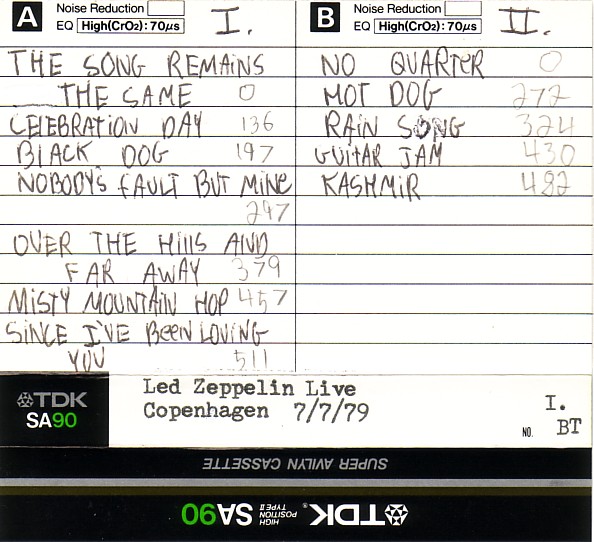 A Noise Reduction
EQ High(CrO2): 70μs I.
THE SONG REMAINS
THE SAME 0
CELEBRATION DAY 136
BLACK DOG 197
NOBODY'S FAULT BUT MINE
247
OVER THE HILLS AND
FAR AWAY 379
MISTY MOUNTAIN HOP 457
SINCE I'VE BEEN LOVING
YOU 511
B Noise Reduction
EQ High(CrO2): 70μs II.
NO QUARTER 0
HOT DOG 272
RAIN SONG 324
GUITAR JAM 430
KASHMIR 482
TDK
SA90
Led Zeppelin Live
Copenhagen 7/7/79
I.
NO. BT
SUPER AVILYN CASSETTE
TDK® HIGH POSITION TYPE II SA90